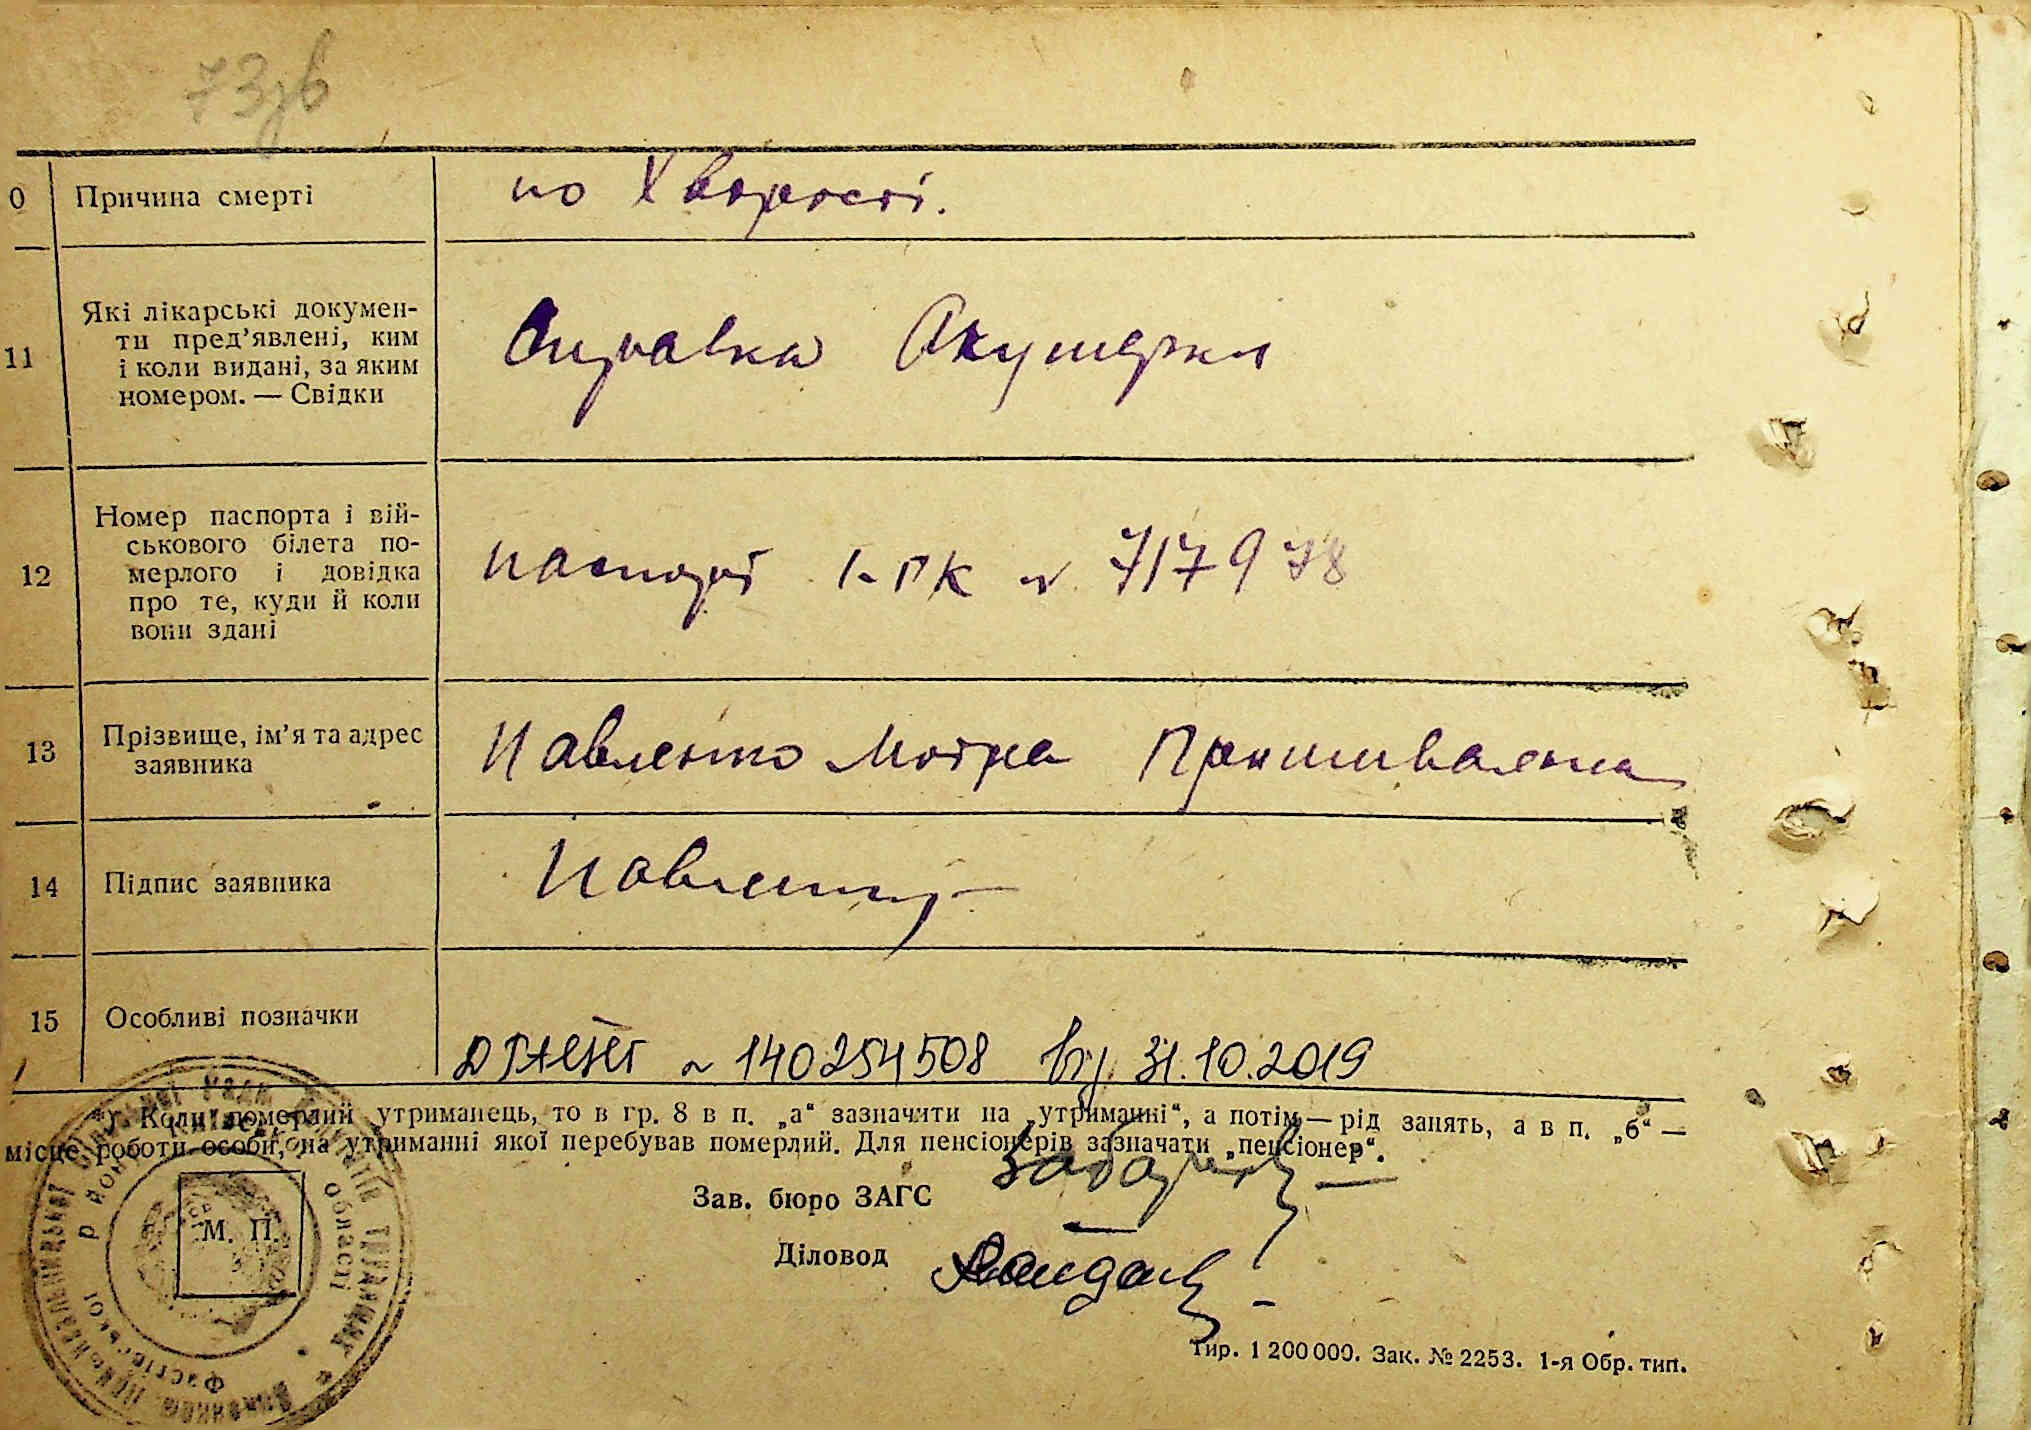 73зв
0 Причина смерті по Хворості.
11 Які лікарські докумен-
ти пред’явлені, ким
і коли видані, за яким
номером. — Свідки
Справка Акушерки
12 Номер паспорта і вій-
ськового білета по-
мерлого і довідка
про те, куди й коли
вони здані
паспорт І-ПК № 717978
13 Прізвище, ім’я та адрес
заявника
Павленко Мотря
14 Підпис заявника Павленко
15 Особливі позначки
№ 140254508 від 31.10.2019
*) Коли померлий утриманець, то в гр. 8 в п. „а“ зазначити на „утриманні“, а потім — рід занять, а в п. „б“ —
місце роботи особи, на утриманні якої перебував померлий. Для пенсіонерів зазначати „пенсіонер“.
Зав. бюро ЗАГС
Діловод
М. П.
області
Фастівської
Тир. 1 200 000. Зак. № 2253. 1-я Обр. тип.